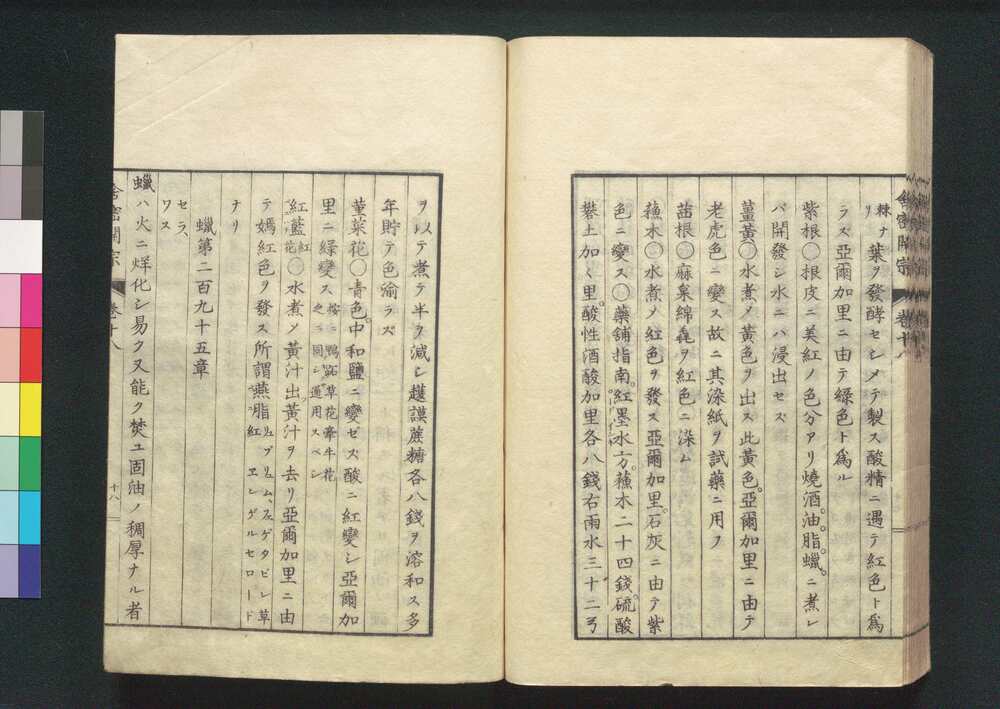 舎密開宗 巻十八
棘ナリ葉ヲ發酵セシメテ製ス酸精ニ遇テ紅色ト爲
ラス亞爾加里ニ由テ綠色ト爲ル
紫根〇根皮ニ美紅ノ色分アリ燒酒油脂蠟ニ煮レ
バ開發シ水ニハ浸出セズ
薑黃〇水煮ノ黃色ヲ出ス此黃色亞爾加里ニ由テ
老虎色ニ變ス故ニ其染紙ヲ試藥ニ用フ
茜根〇麻枲綿毳ヲ紅色ニ染ム
蘓木〇水煮ノ紅色ヲ發ス亞爾加里石灰ニ由テ紫
色ニ變ス〇藥鋪指南紅墨水方蘓木二十四錢硫酸
礬土加く里酸性酒酸加里各八錢右雨水三十二弓
ヲ以テ煮テ半ヲ減シ謨蔗糖各八錢ヲ溶和ス多
年貯テ色渝ラズ
菫菜花〇青色中和鹽ニ變ゼズ酸ニ紅變シ亞爾加
里ニ綠變ス按ニ鴨跖草花牽牛花之ニ同シ通用スベシ
紅藍花〇水煮ノ黃汁出黃汁ヲ去リ亞爾加里ニ由
テ嫣紅色ヲ發ス所謂燕脂
ナリ
蠟第二百九十五章
セラ、
ワス
蠟ハ火ニ烊化シ易ク又能ク焚ユ固油ノ稠厚ナル者
舎密開宗 巻十八 十八